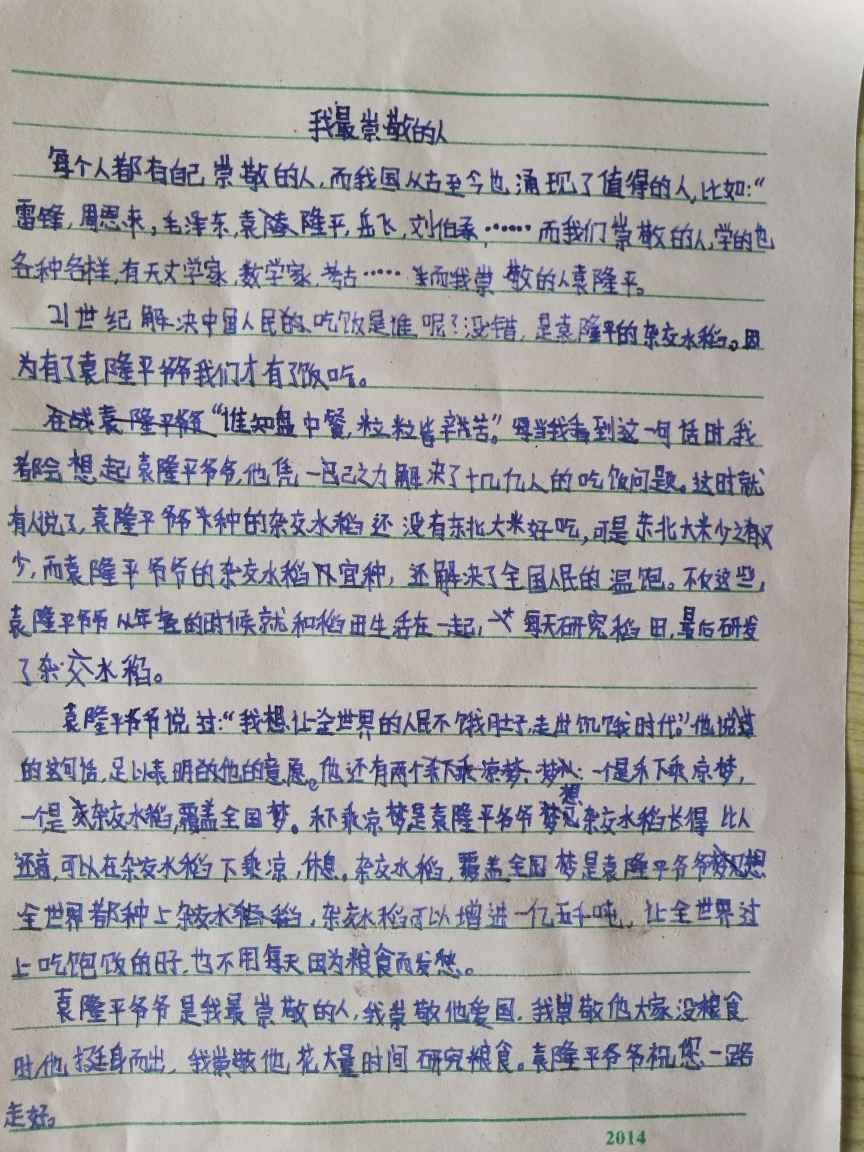 我最崇敬的人
每个人都有自己崇敬的人,而我国从古至今也涌现了值得的人,比如:“
雷锋,周恩来,毛泽东,袁隆平,岳飞,刘伯承,……而我们崇敬的人,学的也
各种各样,有天文学家,数学家,考古……而我崇敬的人袁隆平。
21世纪解决中国人民的吃饭是谁呢?没错,是袁隆平的杂交水稻。因
为有了袁隆平爷爷我们才有了饭吃。
“谁知盘中餐,粒粒皆辛苦。”每当我看到这一句话时,我
都会想起袁隆平爷爷,他凭一己之力解决了十几亿人的吃饭问题。这时就
有人说了,袁隆平爷爷种的杂交水稻还没有东北大米好吃,可是东北大米少之又
少,而袁隆平爷爷的杂交水稻宜种,还解决了全国人民的温饱。不仅这些,
袁隆平爷爷从年轻的时候就和稻田生活在一起,每天研究稻田,最后研发
了杂交水稻。
袁隆平爷爷说过:“我想让全世界的人民不饿肚子,走出饥饿时代。”他说
的这句话,足以表明他的意愿。他还有两个梦:一个是禾下乘凉梦,
一个是杂交水稻,覆盖全国梦。禾下乘凉梦是袁隆平爷爷梦想杂交水稻长得比人
还高,可以在杂交水稻下乘凉,休息。杂交水稻,覆盖全国梦是袁隆平爷爷梦想
全世界都种上杂交水稻,杂交水稻可以增进一亿五千吨,让全世界过
上吃饱饭的日子,也不用每天因为粮食而发愁。
袁隆平爷爷是我最崇敬的人,我崇敬他爱国,我崇敬他大家没粮食
时他挺身而出,我崇敬他花大量时间研究粮食。袁隆平爷爷祝您一路
走好。
2014